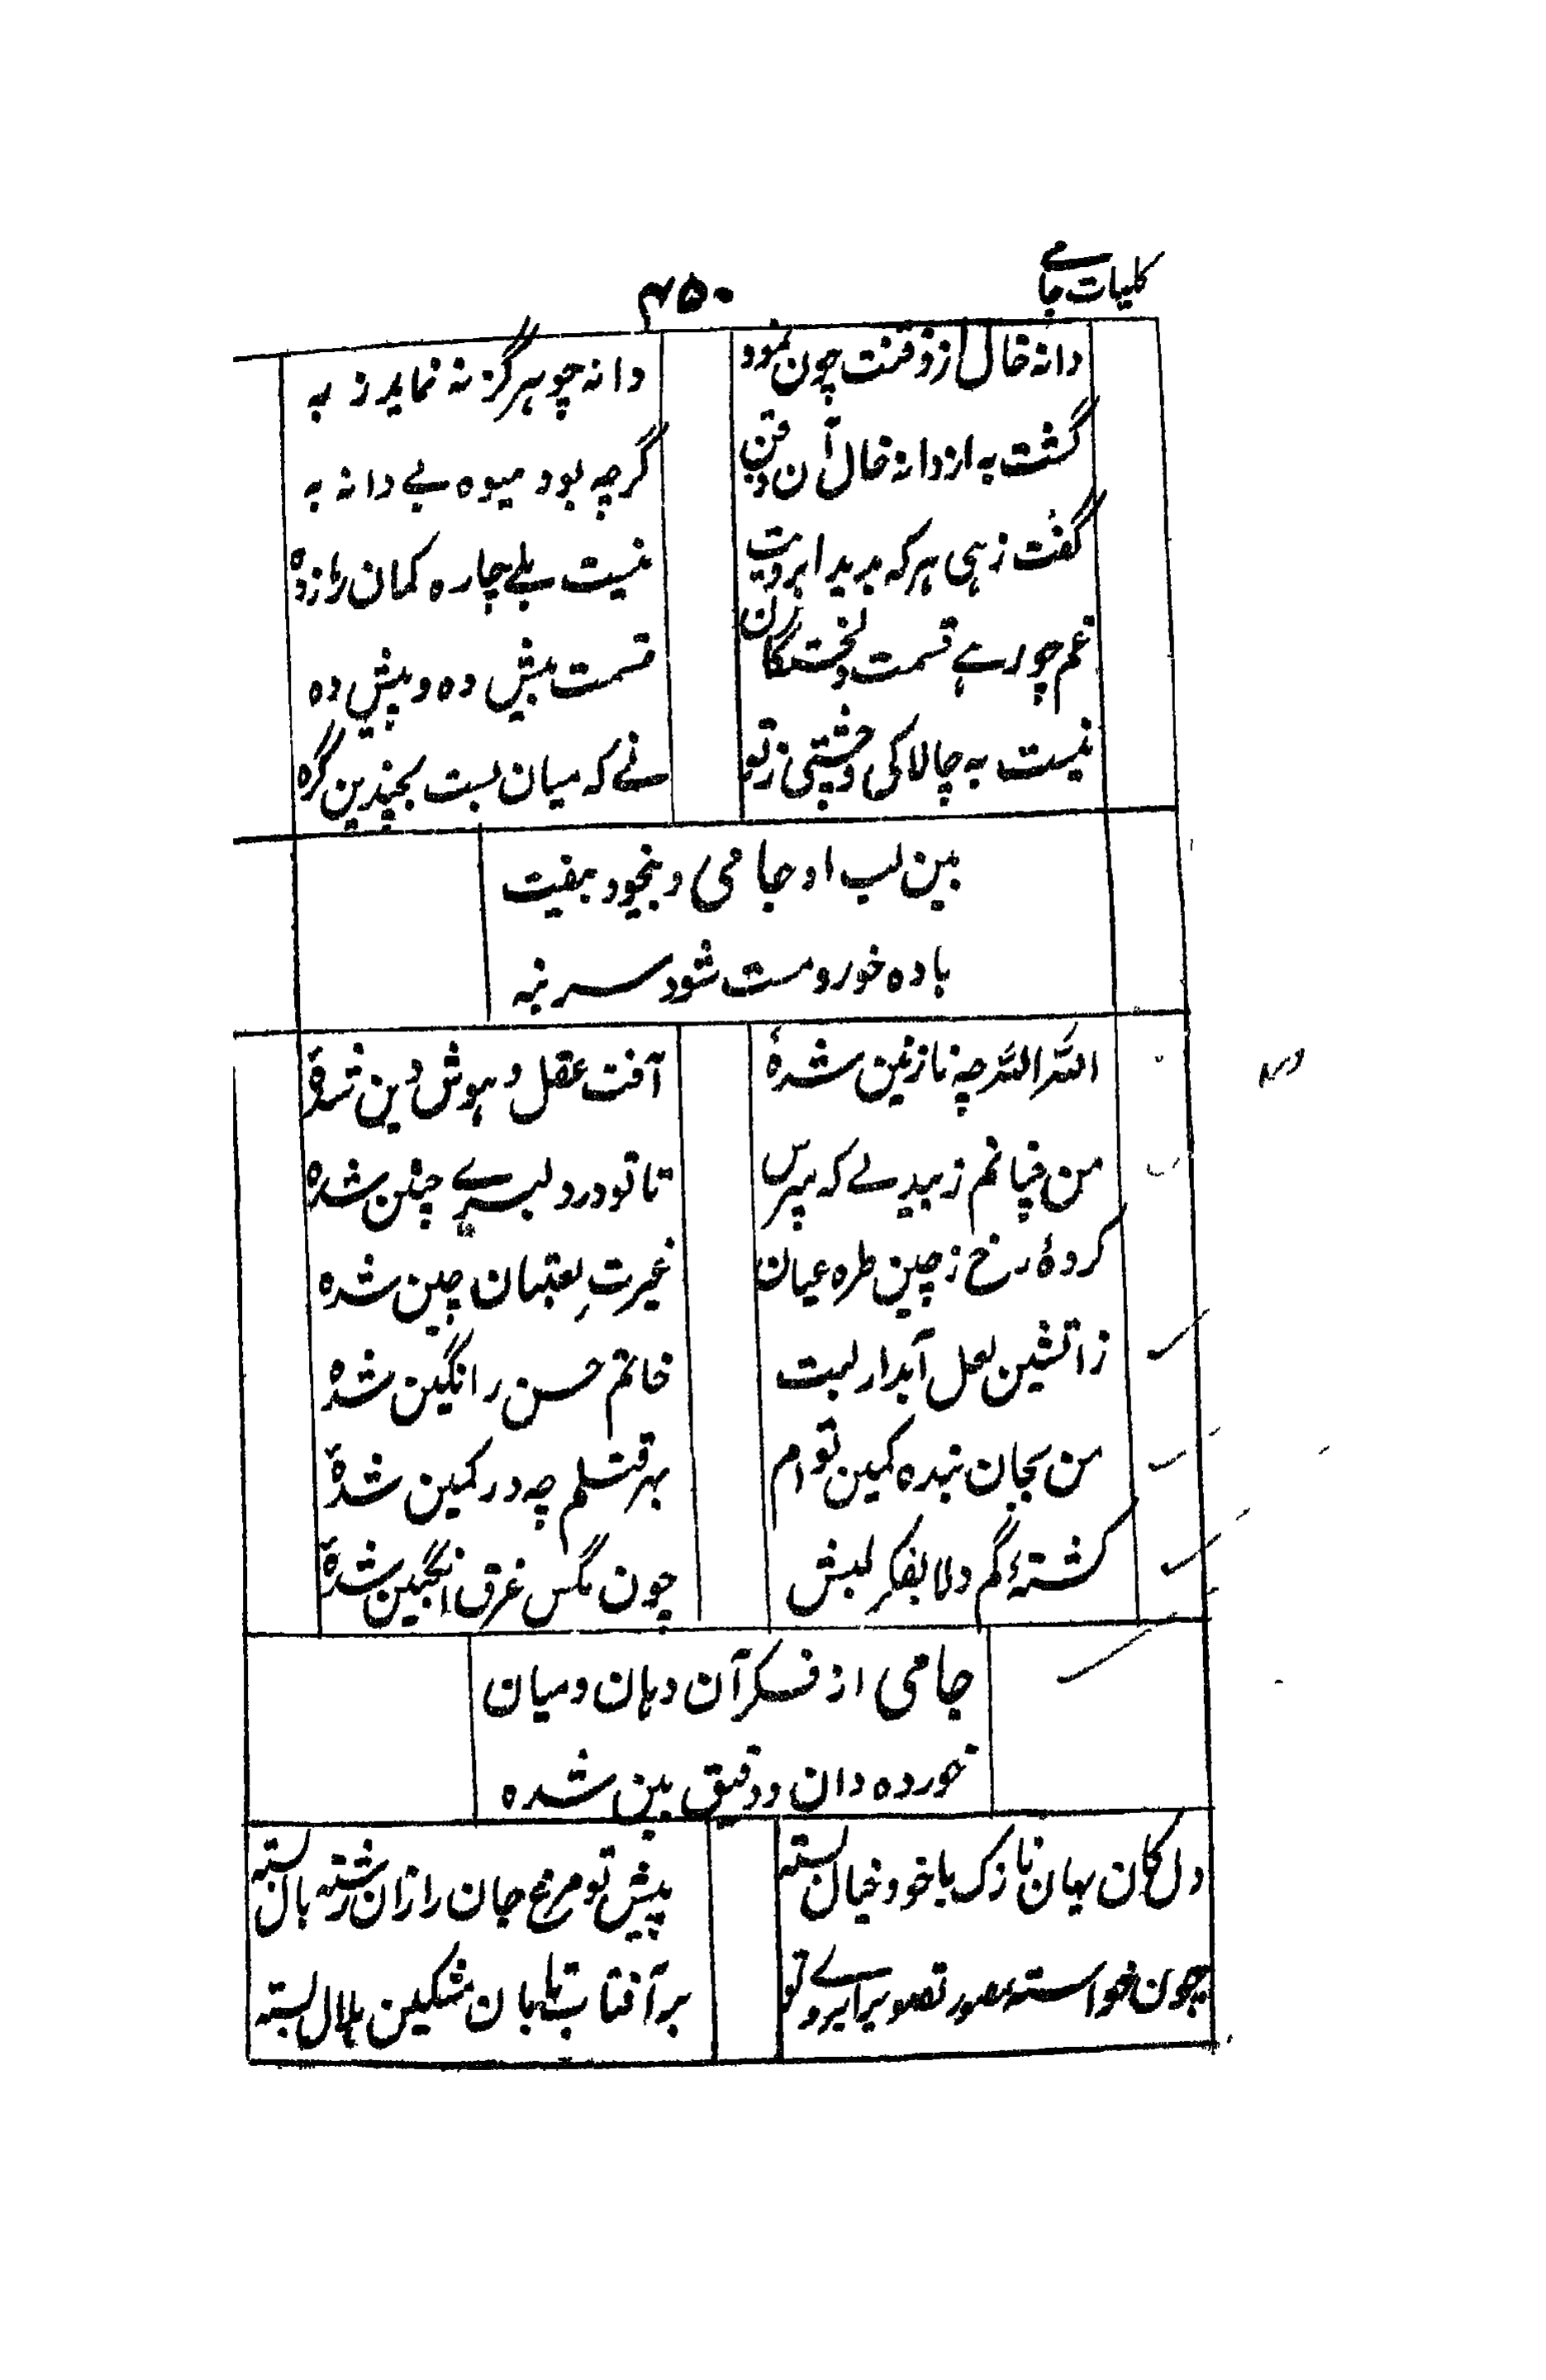 کلیات جامے
۴۵۰
دانه خال از ذقنت چون نمود
دانه چو هرگز نه نماید ز به
گشت به از دانه خال آن ذقن
گرچه بود میوه بے دانه به
گفت زهی هرکه بدید ابرویت
نیست بلے چاره کمان را ز زه
غم چو رسے قسمت دلخستگان
قسمت بیش ده و پیش ده
نیست به چالاکی و چستی ز تو
نے که میان بست بچندین گره
بین لب او جامی و بیخود بیفت
باده خورد مست شود سر بنه
الله الله چه نازنین شدهٔ
آفت عقل و هوش و دین شدهٔ
من چنانم ز بیدلے که مپرس
تا تو در دلبرے چنین شده
کردهٔ رخ ز چین طره عیان
غیرتِ لعبتان چین شده
ز آتشین لعل آبدار لبت
خاتم حسن را نگین شده
من بجان بنده کمین توام
بهر قتلم چه در کمین شدهٔ
گشتهٔ گم دلا بفکرِ لبش
چون مگس غرق انگبین شدهٔ
جامی از فکر آن دهان و میان
خورده دان و دقیق بین شده
دل کان میان نازک با خود خیال بسته
پیش تو مرغ جان را زان رشته بال بسته
چون خواسته مصور تصویر ابروے تو
بر آفتاب تابان مشکین هلال بسته